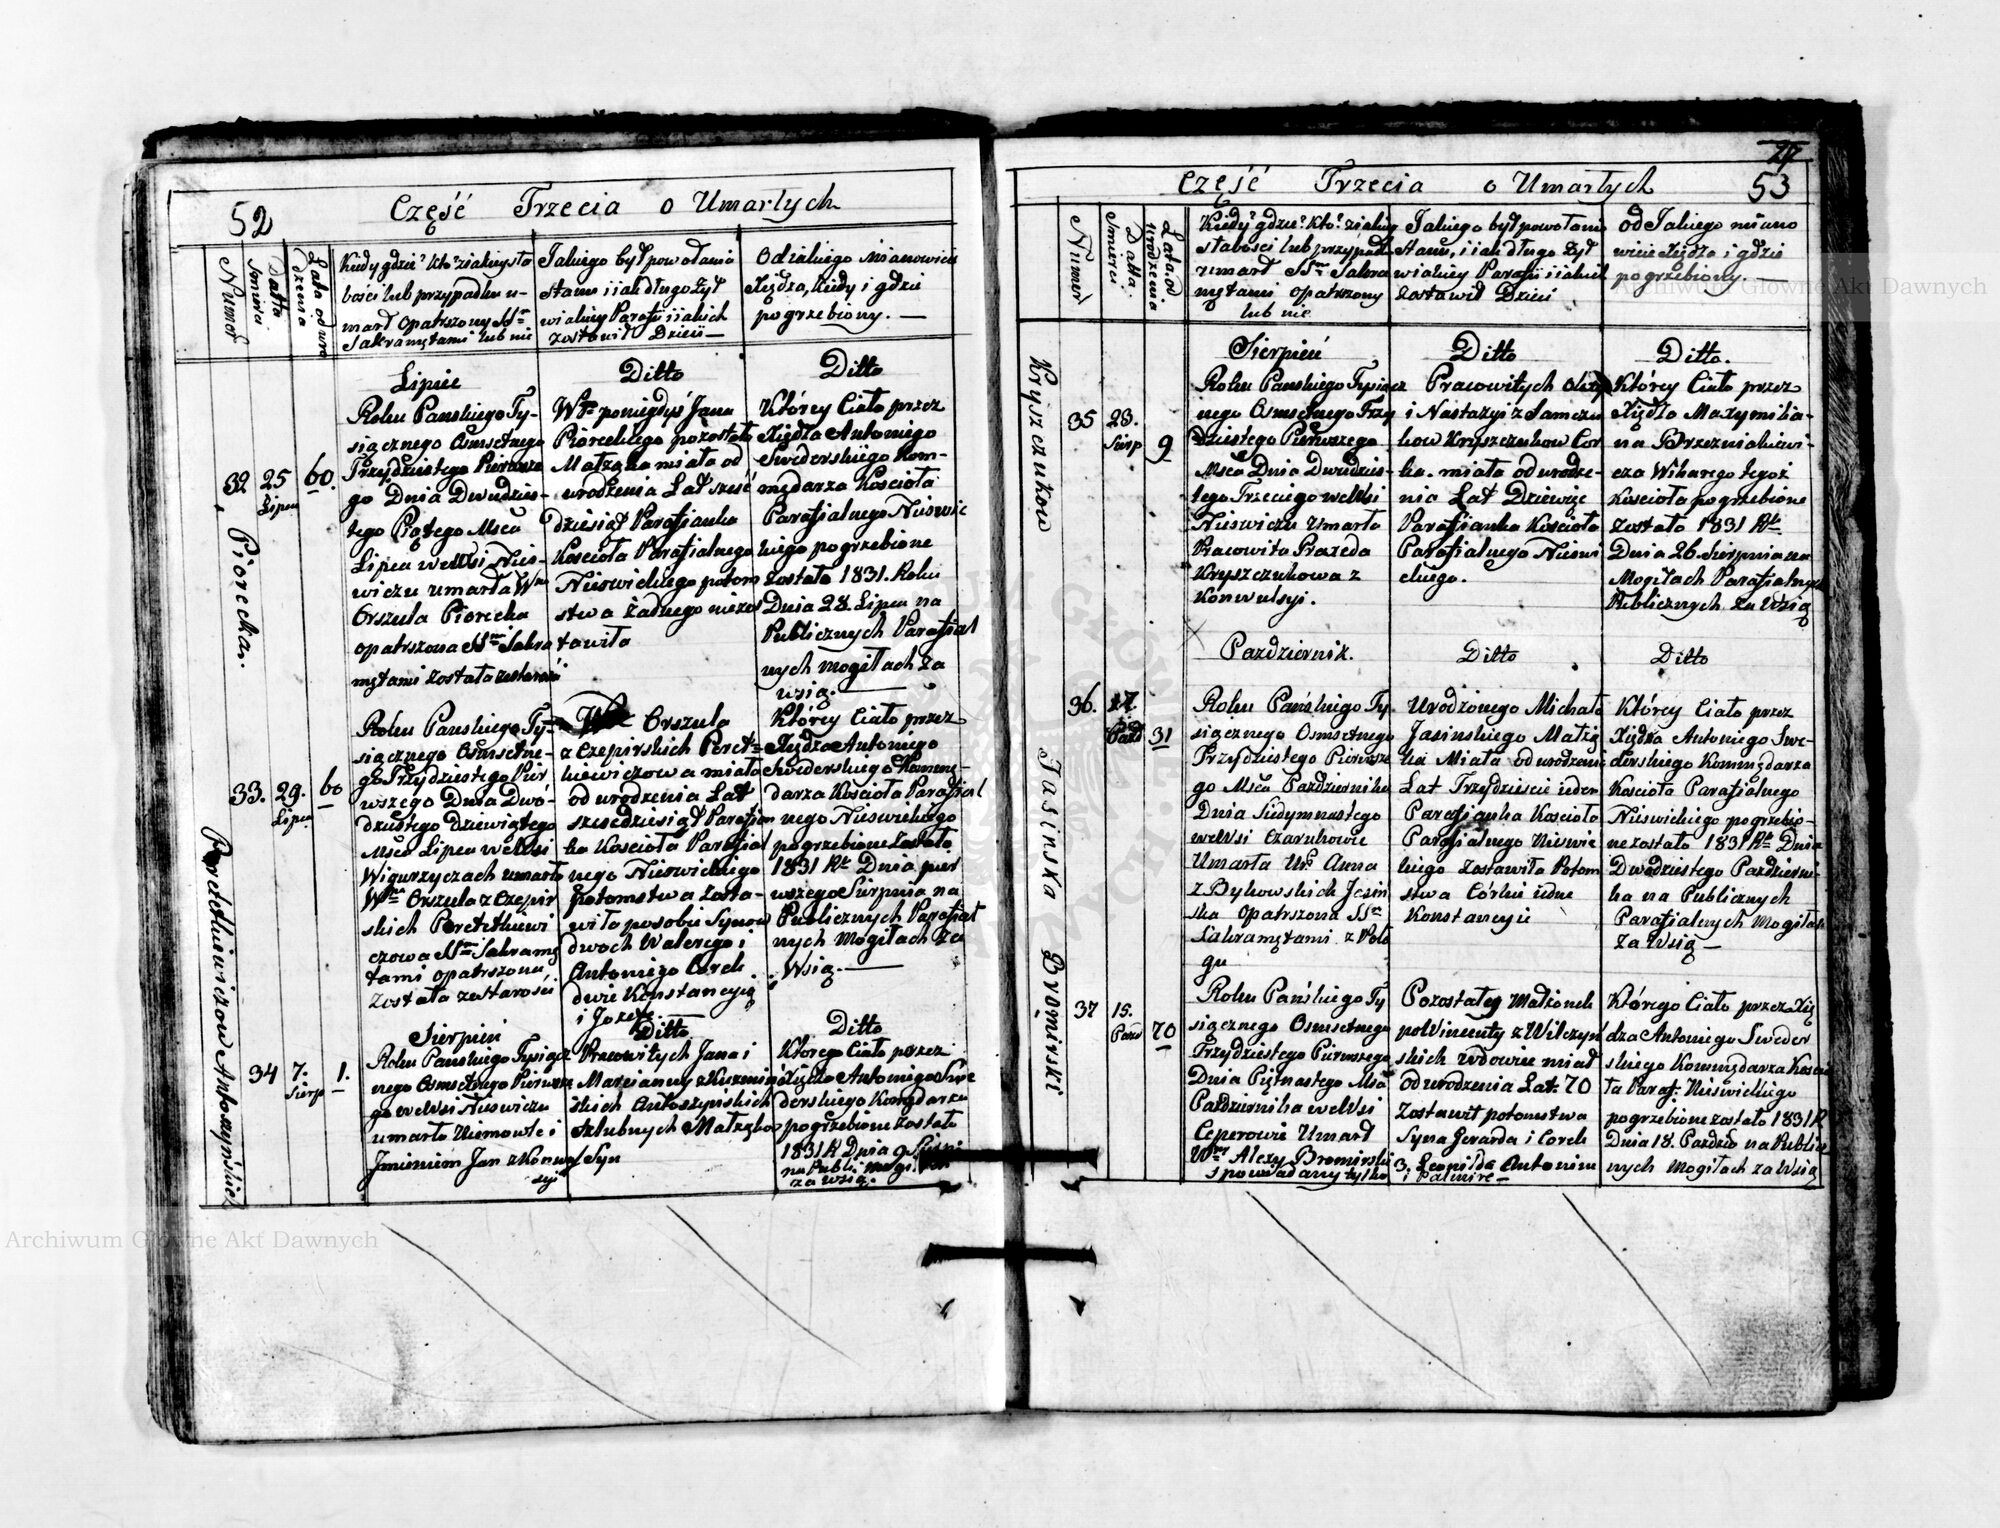 52
Część Trzecia o Umarłych
Numer
Datta Smierci
Lata od uro
dzenia
Kiedy gdzie? kto? z iakiey sła
bości lub przypadku u-
marł Opatrszony SSmi
Sakramętami lub nie
Jakiego był powołania
stanu i iak długo żył
wialkiey Parafii i iakich
zostawił Dzieci—
Od iakiego Mianowicie
Xiędza, kiedy i gdzie
pogrzebiony.—
Lipiec
Ditto
Ditto
32 25 60.
Lipca
Piorecka.
Roku Panskiego Ty-
siącznego Osmsetnego
Trzydziestego Pierwsze
go Dnia Dwudzies-
tego Piątego Msca
Lipca we Wsi Nies-
wiczu umarła W
Orszula Piorecka
opatrszona SSmi Sakra
mętami została ze starości
W poniegdyś Janu
Piorechiego pozostała
Małżąka miała od
urodzenia Lat sześć
dziesiąt Parafianka
Kościoła Parafialnego
Nieswickiego potom
stwa żadnego niezos
tawiła
Którey Ciało przez
Xiędza Antoniego
Swederskiego Kom-
mędarza Kościoła
Parafialnego Nieswic
kiego pogrzebione
zostało 1831. Roku
Dnia 28. Lipca na
Publicznych Parafial
nych mogiłach za
wsią.—
33. 29. 60
Lipca
Roku Panskiego Ty-
siącznego Osmsetne-
go Trzydziestego Pier
wszego Dnia Dwó-
dziestego Dziewiątego
Msca Lipca we Wsi
Wigurzyczach umarła
W Orszula z Czepir
skich Peretthiewi
czowa SSmi Sakramę
tami opatrszona
została ze starości
Orszula
z Czepirskich Perett=
kiewiczowa miała
od urodzenia Lat
szesedziesiąt Parafian
ka Kościoła Parafial
nego Nieswickiego
potomstwa zosta-
wiła po sobie Synow
dwoch Walerego i
Antoniego Corek
dwie Konstancyią
i Jozefę
Którey Ciało przez
Xiędza Antoniego
Swederskiego Komme-
darza Kościoła Parafial
nego Nieswickiego
pogrzebione zostało
1831 Rk Dnia pier
wszego Sierpnia na
Publicznych Parafial
nych Mogiłach za
Wsią.—
Sierpień
Ditto
Ditto
34 7. 1.
Sierp
Roku Panskiego Tysiącz
nego Osmsetnego Pierwsze
go we Wsi Nieswiczu
umarło Niemowle i
Jmieniem Jan z Konwul
syi
Pracowitych Jana i
Marcianny z Kuzmin
skich Antoszyńskich
szlubnych Małżąkow
Syn
Ktorego Ciało przez
Xiędza Antoniego Swe
derskiego Komędarza
pogrzebione zostało
1831 R Dnia 9 Sierpni
na Publi: mogiłach
za wsią.
53
Część Trzecia o Umarłych
Numer
Datta
Smierci
Lata od
urodzenia
Kiedy? gdzie? kto? z iakiey
słabości lub przypadk
umarł SSmi Sakra
mętami opatrszony
lub nie
Jakiego był powołania
stanu, i iak długo żył
wialkiey Parafii i iakich
zostawił Dzieci
Od Jakiego miano
wicie Xiędza i gdzie
pogrzebiony.—
Archiwum Główne Akt Dawnych
Sierpień
Ditto
Ditto.
Kryszczukow
35 23. 9
Sierp
Roku Panskiego Tysiącz
nego Osmsetnego Trzy
dziestego Pierwszego
Msca Dnia Dwudzies-
tego Trzeciego we Wsi
Nieswiczu Umarła
Pracowita Prazeda
Kryszczukowa z
Konwulsyi.
Pracowitych
i Nastazyi z Samczu
kow Kryszczukow Cor
ka. miała od urodze-
nia Lat Dziewięć
Parafianka Kościoła
Parafialnego Nieswi
ckiego.
Którey Ciało przez
Xiędza Maxymilia-
na Brzezniakiewi-
cza Wikarego tegoż
Kościoła pogrzebione
zostało 1831 Rk
Dnia 26 Sierpnia na
Mogiłach Parafialnych
Publicznych za Wsią
Pazdziernik.
Ditto
Ditto
36. 17. 31
Pazd
Jasinska
Roku Pańskiego Ty
siącznego Osmsetnego
Trzydziestego Pierwsze
go Msca Pazdziernika
Dnia Siedymnastego
we Wsi Czarukowie
Umarła Ur. Anna
z Bykowskich Jasin
ska Opatrszona SSmi
Sakramętami z Poło
gu
Urodzonego Michała
Jasinskiego Małżą
ka Miała od urodzenia
Lat Trzydzieście ieden
Parafianka Kościoła
Parafialnego Nieswic
kiego zostawiła Potom
stwa Córkie iedne
Konstancyie
Którey Ciało przez
Xiędza Antoniego Swe-
derskiego Kommędarza
Kościoła Parafialnego
Nieswickiego pogrzebio-
ne zostało 1831 Rk Dnia
Dwódziestego Pazdzierni-
ka na Publicznych
Parafialnych Mogiłach
za Wsią—
37 15. 70
Pazd
Bromirski
Roku Pańskiego Ty
siącznego Osmsetnego
Trzydziestego Pierwszego
Dnia Piętnastego Msca
Pazdziernika we Wsi
Ceperowie Umarł
Alexy Bromirski
spowiadany tylko
Pozostały Małżonek
po Wincenty z Wilczyń
skich wdowiec miał
od urodzenia Lat. 70
Zostawił potomstwa
Syna Gerarda i Corek
3. Leonilde Antonine
i Palmire—
Którego Ciało przez Xię
dza Antoniego Sweder
skiego Kommędarza Kościo
ła Paraf: Nieswickiego
pogrzebione zostało 1831 R
Dnia 18. Pazdzi na Publicz
nych Mogiłach za Wsią
Archiwum Główne Akt Dawnych